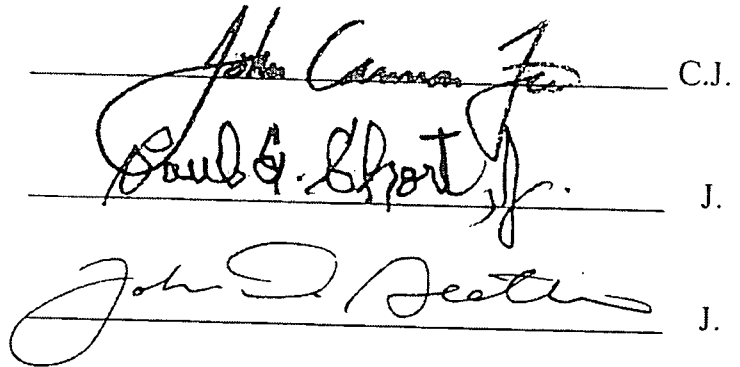 John Cannon Jr. C.J.
Paul E. Short, Jr. J.
John D. Geathers J.